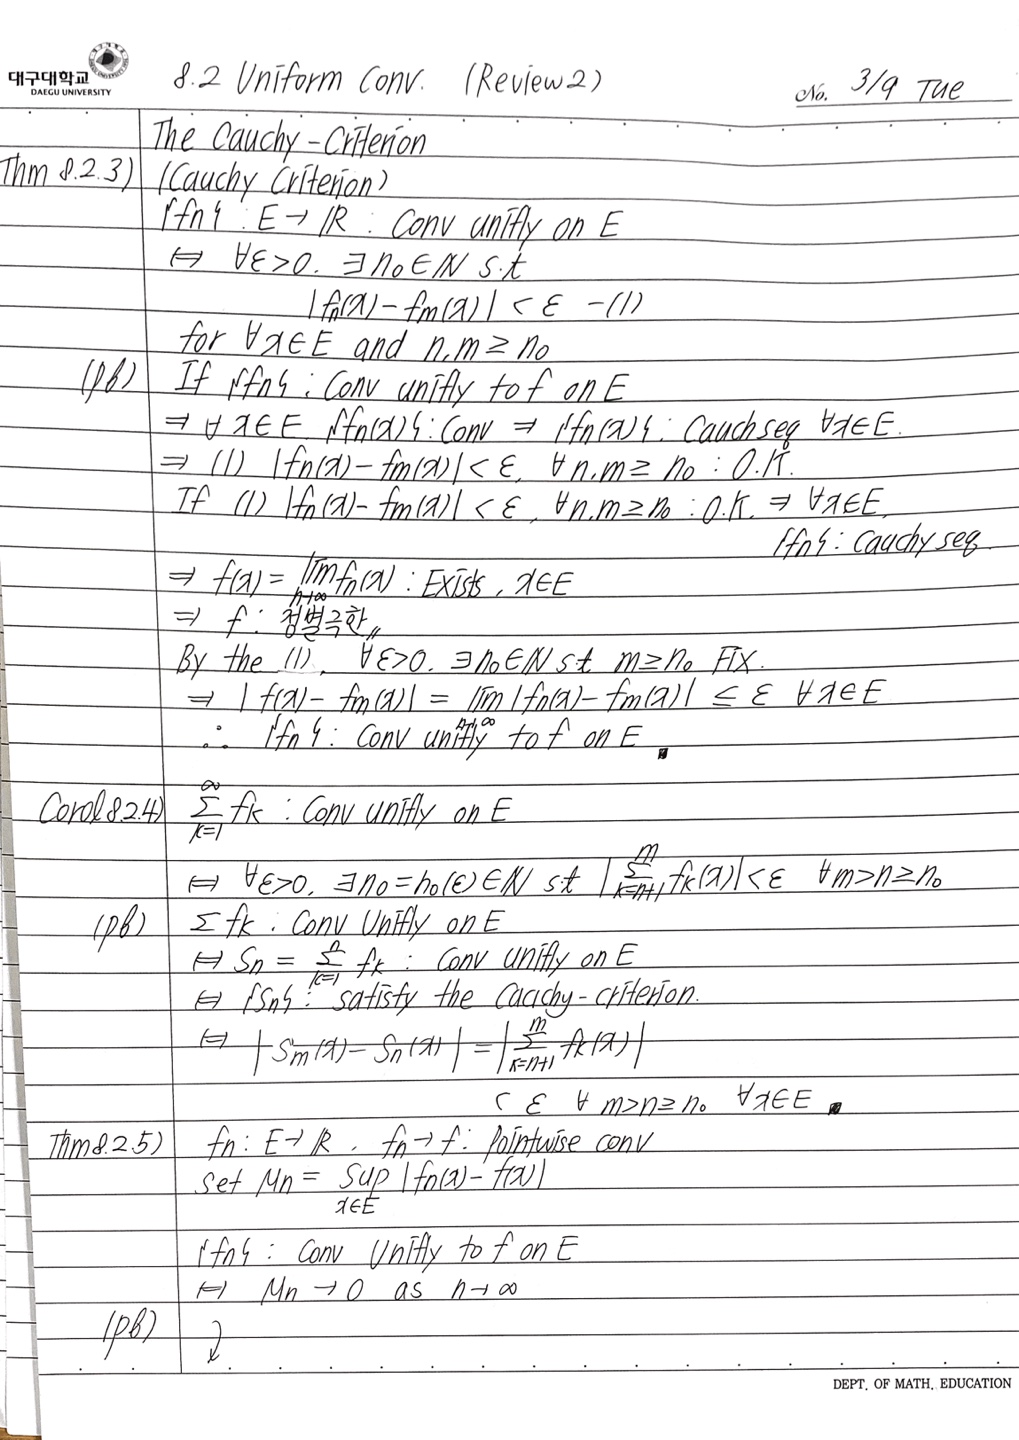 대구대학교
DAEGU UNIVERSITY
8.2 Uniform Conv. (Review2)
No. 3/9 Tue
The Cauchy-Criterion
Thm 8.2.3) (Cauchy Criterion)
{fn} : E → ℝ : Conv unifly on E
⇔ ∀ε>0. ∃n₀∈ℕ s.t
|fn(x) - fm(x)| < ε -(1)
for ∀x∈E and n,m ≥ n₀
(pf) If {fn} : Conv unifly to f on E
⇒ ∀x∈E {fn(x)} : Conv ⇒ {fn(x)} : Cauchseq ∀x∈E.
⇒ (1) |fn(x) - fm(x)| < ε, ∀n.m ≥ n₀ : O.K.
If (1) |fn(x) - fm(x)| < ε, ∀n.m ≥ n₀ : O.K. ⇒ ∀x∈E,
{fn} : Cauchy seq
⇒ f(x) = lim n→∞ fn(x) : Exists, x∈E
⇒ f : 점별극한〃
By the (1), ∀ε>0. ∃n₀∈ℕ s.t m≥n₀ Fix.
⇒ |f(x) - fm(x)| = lim n→∞ |fn(x) - fm(x)| ≤ ε ∀x∈E
∴ {fn} : Conv unifly to f on E ∎
Corol 8.2.4) ∞ Σ k=1 fk : Conv unifly on E
⇔ ∀ε>0, ∃n₀=n₀(ε)∈ℕ s.t |m Σ k=n+1 fk(x)| < ε ∀m>n≥n₀
(pf) Σ fk : Conv Unifly on E
⇔ Sn = n Σ k=1 fk : Conv unifly on E
⇔ {Sn} : satisfy the Cacchy-criterion.
⇔ |Sm(x) - Sn(x)| = |m Σ k=n+1 fk(x)|
< ε ∀ m>n≥n₀ ∀x∈E ∎
Thm 8.2.5) fn : E → ℝ, fn → f : Pointwise conv
set Mn = Sup x∈E |fn(x) - f(x)|
{fn} : Conv Unifly to f on E
⇔ Mn → 0 as n → ∞
(pf)
DEPT. OF MATH. EDUCATION